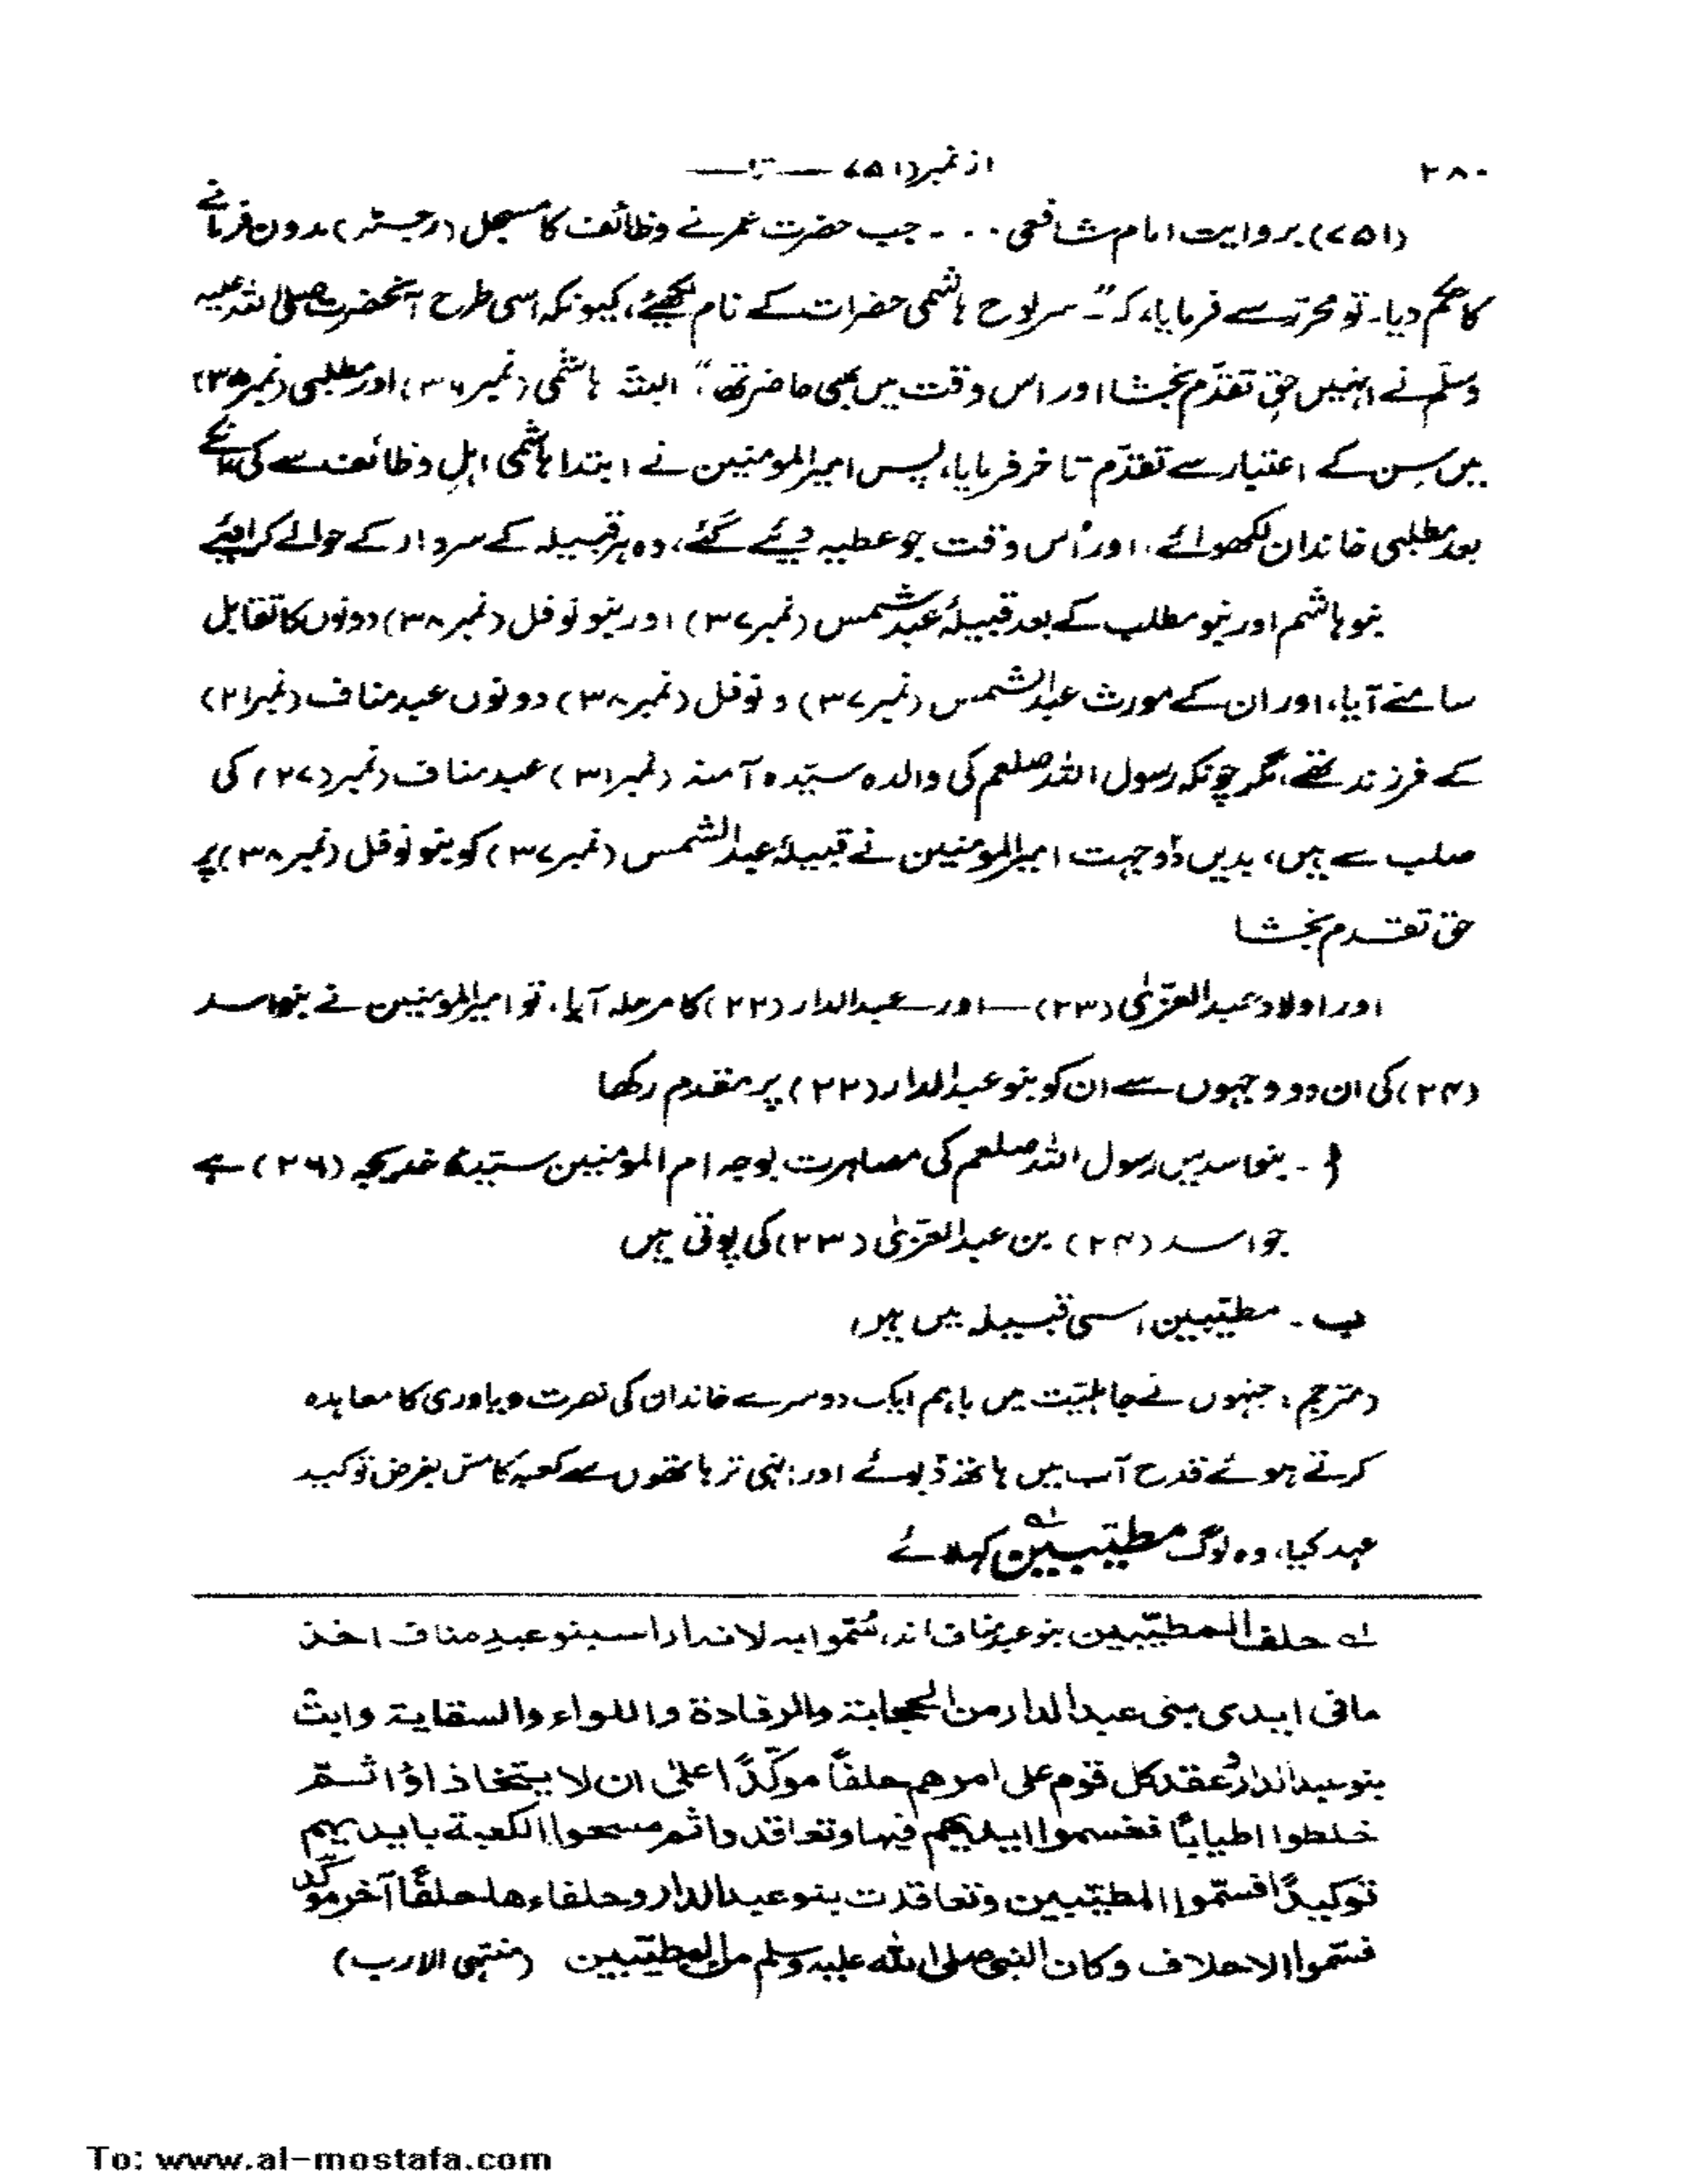 ۲۸۰ از نمبر(۷۵۱ — تا —
(۷۵۱) بروایت امام شافعی ۔ ۔ ۔ ۔ جب حضرت عمر نے وظائف کا مسجل (رجسٹر) مدون فرمانے
کا حکم دیا۔ تو محرّر سے فرمایا، کہ "۔ سرلوح ہاشمی حضرات کے نام لکھیئے، کیونکہ اسی طرح آنحضرت صلی اللہ علیہ
وسلّم نے انہیں حقِ تقدّم بخشا اور اس وقت میں بھی حاضر تھا" البتہ ہاشمی (نمبر ۳۶) اور مطلبی (نمبر ۳۵)
میں سِن کے اعتبار سے تقدّم تاخر فرمایا، پس امیرالمومنین نے ابتدا ہاشمی اہلِ وظائف سے کی
بعد مطلبی خاندان لکھوائے، اور اُس وقت جو عطیہ دیئے گئے، وہ ہر قبیلہ کے سردار کے حوالے کرا دیئے
بنو ہاشم اور بنو مطلب کے بعد قبیلۂ عبد شمس (نمبر ۳۷) اور بنو نوفل (نمبر ۳۸) دونوں کا تقابل
سامنے آیا، اور ان کے مورث عبدالشمس (نمبر ۳۷) و نوفل (نمبر ۳۸) دونوں عبد مناف (نمبر ۲۱)
کے فرزند تھے، مگر چونکہ رسول اللہ صلعم کی والدہ سیّدہ آمنہ (نمبر ۳۱) عبد مناف (نمبر (۲۷) کی
صلب سے ہیں، بدیں دُو جہت امیرالمومنین نے قبیلۂ عبدالشمس (نمبر ۳۷) کو بنو نوفل (نمبر ۳۸) پر
حق تقدم بخشا
اور اولاد عبدالعزّیٰ (۲۳) — اور — عبدالدار (۲۲) کا مرحلہ آیا، تو امیرالمومنین نے بنو اسد
(۲۴) کی ان دو وجہوں سے ان کو بنو عبدالدار (۲۲) پر مقدم رکھا
ا ۔ بنو اسد میں رسول اللہ صلعم کی مصاہرت بوجہ ام المومنین سیّدہ خدیجہ (۲۶) ہے
جو اسد (۲۴) بن عبدالعزّیٰ (۲۳) کی پوتی ہیں
ب ۔ مطیّبین، اسی قبیلہ میں ہیں
(مترجم : جنہوں نے جاہلیّت میں باہم ایک دوسرے خاندان کی نصرت و یاوری کا معاہدہ
کرتے ہوئے قدح آب میں ہاتھ ڈبوئے اور انہی تر ہاتھوں سے کعبہ کا مس بغرض توکید
عہد کیا، وہ لوگ مطیّبین لہ کہلائے
لہ حلف المطیّبین بنو عبد مناف سُمّوا بہ لانہ ارا بنو عبدِ مناف اخذ
ما فی ایدی بنی عبد الدار من الحجابۃ والرفادۃ واللواء والسقایۃ وابت
بنو عبد الدار و عقد کل قوم علی امرھم حلفًا موکّدًا علیٰ ان لا یتخاذلوا ثم
خلطوا اطیابًا فغسموا ایدیھم فیھا وتعاقدوا ثم مسحوا الکعبۃ بایدیھم
توکیدًا فسمّوا المطیّبین وتعاقدت بنو عبد الدار وحلفاءھا حلفًا آخر موکّد
فسمّوا الاحلاف وکان النبی صلی اللہ علیہ وسلم من المطیّبین (منتہی الارب)
To: www.al-mostafa.com